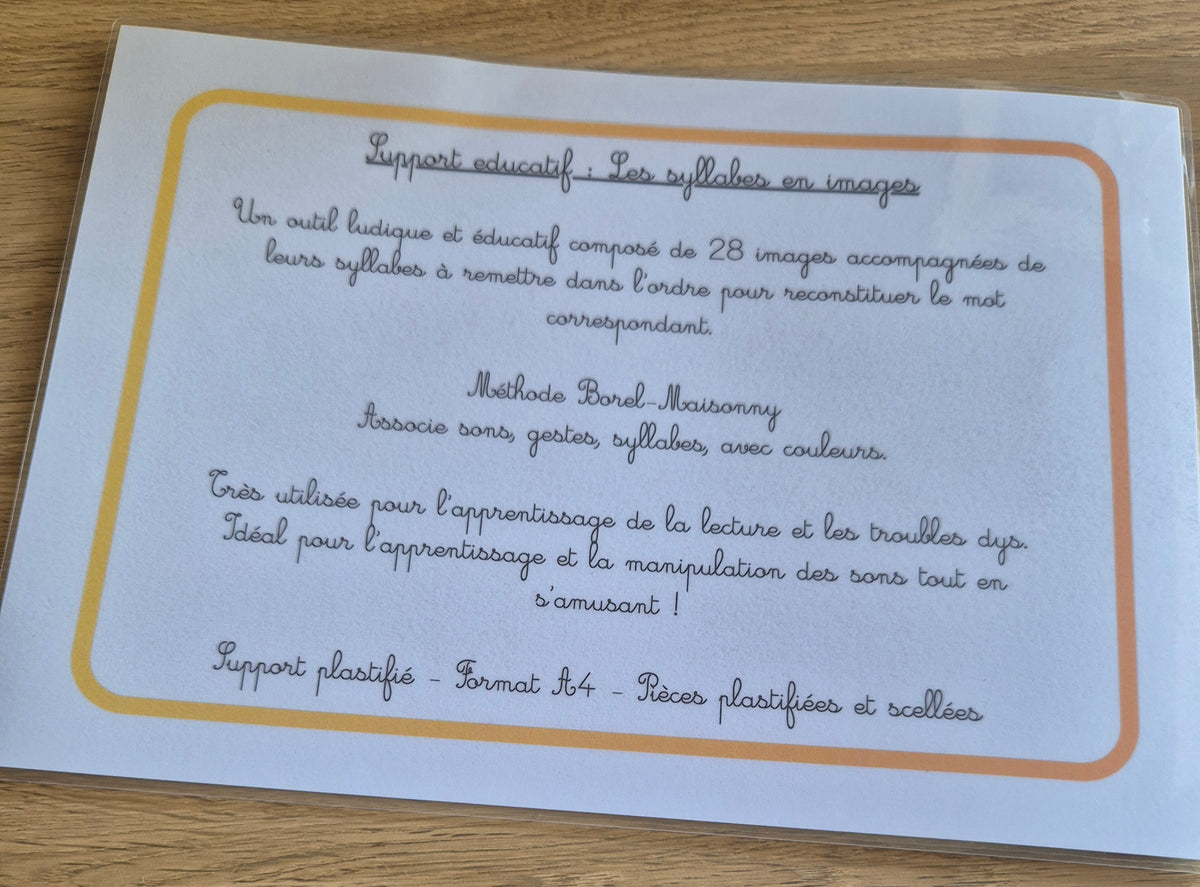 Support educatif : Les syllabes en images
Un outil ludique et éducatif composé de 28 images accompagnées de
leurs syllabes à remettre dans l'ordre pour reconstituer le mot
correspondant.
Méthode Borel-Maisonny
Associe sons, gestes, syllabes, avec couleurs.
Très utilisée pour l'apprentissage de la lecture et les troubles dys.
Idéal pour l'apprentissage et la manipulation des sons tout en
s'amusant !
Support plastifié - Format A4 - Pièces plastifiées et scellées